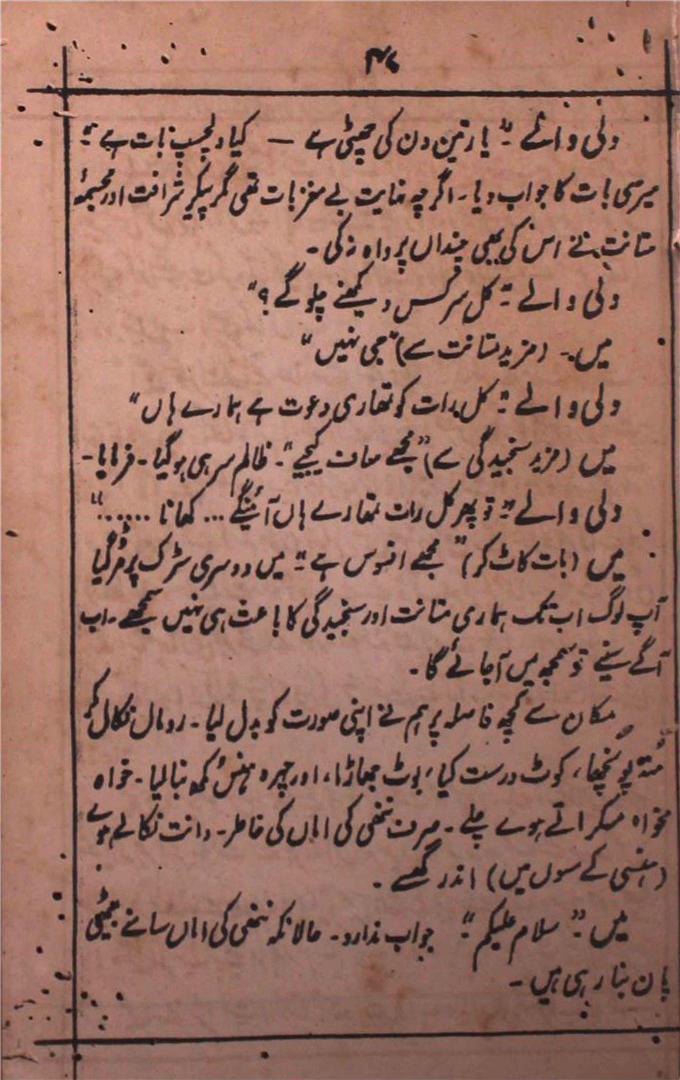 ۴۶
دلی والے ۔" یار تین دن کی چھٹی ہے — کیا دلچسپ بات ہے "
میری بات کا جواب دیا۔ اگرچہ نہایت بے مغز بات تھی گر پیکرِ شرافت اور مجسمۂ
متانت نے اس کی بھی چنداں پرواہ نہ کی ۔
دلی والے ۔" کل سرکس دیکھنے چلو گے ؟"
میں ۔ (مزید متانت سے) "جی نہیں"
دلی والے ۔" کل رات کو تمھاری دعوت ہے ہمارے ہاں"
میں (مزید سنجیدگی سے) " مجھے معاف کیجیے "۔ ظالم سر ہی ہو گیا ۔ فرمایا ۔
دلی والے " تو پھر کل رات تمھارے ہاں آئینگے ... کھانا ....."
میں (بات کاٹ کر) " مجھے افسوس ہے " میں دوسری سڑک پر مڑ گیا
آپ لوگ اب تک ہماری متانت اور سنجیدگی کا باعث ہی نہیں سمجھے ۔ اب
آگے سنیے تو سمجھ میں آ جائے گا ۔
مکان سے کچھ فاصلہ پر ہم نے اپنی صورت کو بدل لیا ۔ رومال نکال کر
مُنہ پونچھا ، کوٹ درست کیا ، بوٹ جھاڑا ، اور چہرہ ہنس مکھ بنا لیا ۔ خواہ
مخواہ مسکراتے ہوے چلے ۔ صرف ننھی کی اماں کی خاطر ۔ دانت نکالے ہوے
(ہنسی کے سوں میں) اندر گھسے ۔
میں ۔" سلام علیکم " جواب ندارد ۔ حالانکہ ننھی کی اماں سامنے بیٹھی
پان بنا رہی ہیں ۔